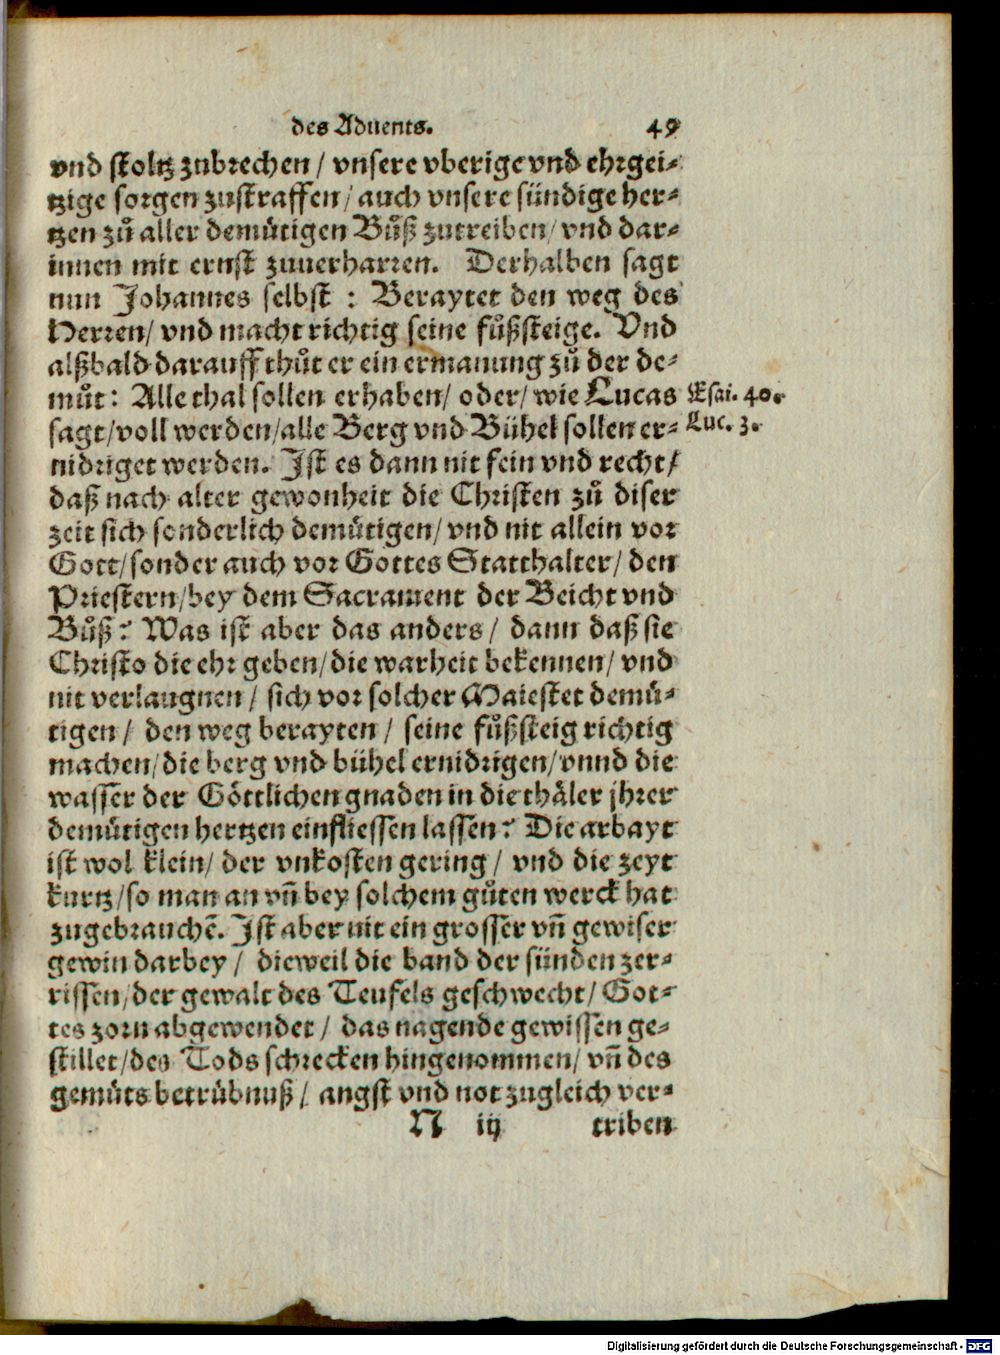 des Aduents. 49
vnd stoltz zubrechen / vnsere vberige vnd ehrgei-
tzige sorgen zustraffen / auch vnsere sündige her-
tzen zů aller demütigen Bůß zutreiben / vnd dar-
innen mit ernst zuuerharren. Derhalben sagt
nun Johannes selbst : Beraytet den weg des
Herren / vnd macht richtig seine fůßsteige. Vnd
alßbald darauff thůt er ein ermanung zů der de-
můt: Alle thal sollen erhaben / oder / wie Lucas
Esai. 40.
sagt / voll werden / alle Berg vnd Bühel sollen er-
Luc. 3.
nidriget werden. Ist es dann nit fein vnd recht /
daß nach alter gewonheit die Christen zů diser
zeit sich sonderlich demütigen / vnd nit allein vor
Gott / sonder auch vor Gottes Statthalter / den
Priestern / bey dem Sacrament der Beicht vnd
Bůß? Was ist aber das anders / dann daß sie
Christo die ehr geben / die warheit bekennen / vnd
nit verlaugnen / sich vor solcher Maiestet demü-
tigen / den weg berayten / seine fůßsteig richtig
machen / die berg vnd bühel ernidrigen / vnnd die
wasser der Göttlichen gnaden in die thäler jhrer
demütigen hertzen einfliessen lassen? Die arbayt
ist wol klein / der vnkosten gering / vnd die zeyt
kurtz / so man an vñ bey solchem gůten werck hat
zugebrauchẽ. Ist aber nit ein grosser vñ gewiser
gewin darbey / dieweil die band der sünden zer-
rissen / der gewalt des Teufels geschwecht / Got-
tes zorn abgewendet / das nagende gewissen ge-
stillet / des Tods schrecken hingenommen / vñ des
gemüts betrübnuß / angst vnd not zugleich ver-
N iij triben
Digitalisierung gefördert durch die Deutsche Forschungsgemeinschaft - DFG